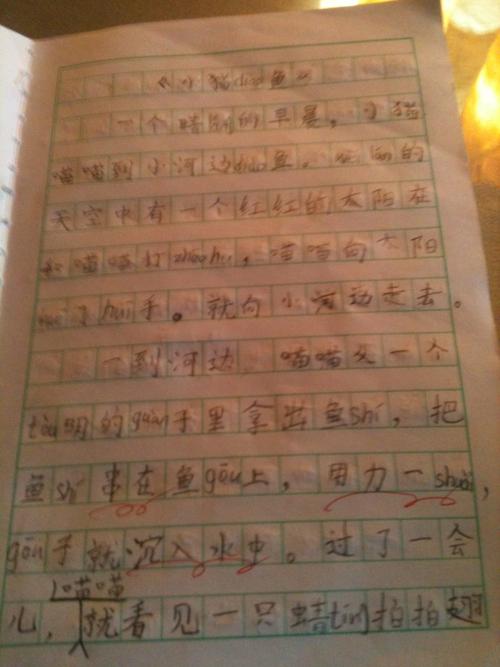 《小猫diào鱼》
一个晴朗的早晨,小猫
喵喵到小河边diào鱼。的
天空中有一个红红的太阳在
和喵喵打zhāohu,喵喵向太阳
了huī手。就向小河边走去。
一到河边 喵喵从一个
tòu明的guàn子里拿出鱼shí,把
鱼shí串在鱼gōu上,用力一shuǎi,
gōu子就沉入水中。过了一会
喵喵
儿,就看见一只蜻tíng拍拍翅